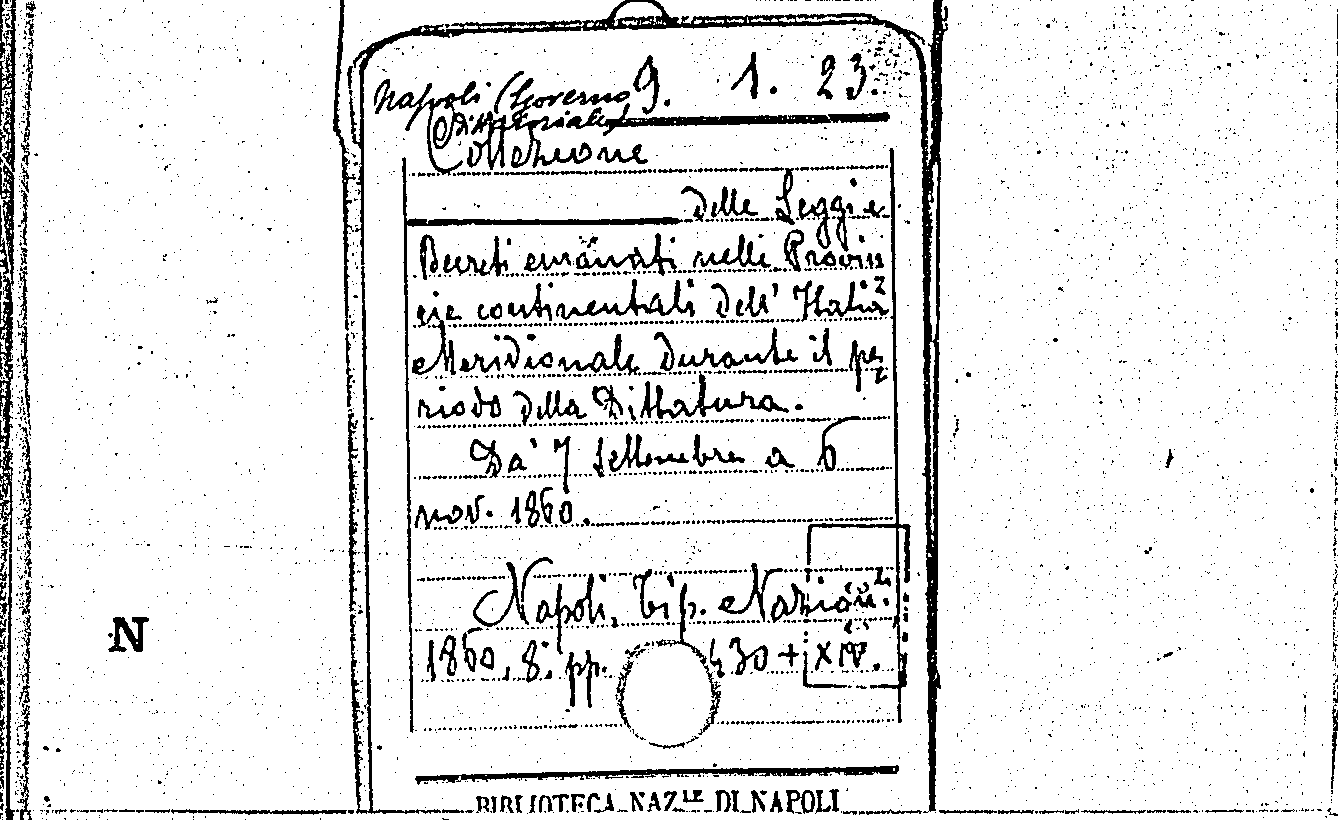 Napoli (Governo 9. 1. 23.
Dittatoriale)
Collezione
delle Leggi e
Decreti emanati nelle Provin
cie continentali dell' Italia
Meridionale durante il pe
riodo della Dittatura.
Da' 7 Settembre a 6
nov. 1860.
Napoli, Tip. Nazion.
1860, 8. pp. 430 + XIV.
N
BIBLIOTECA NAZLE DI NAPOLI